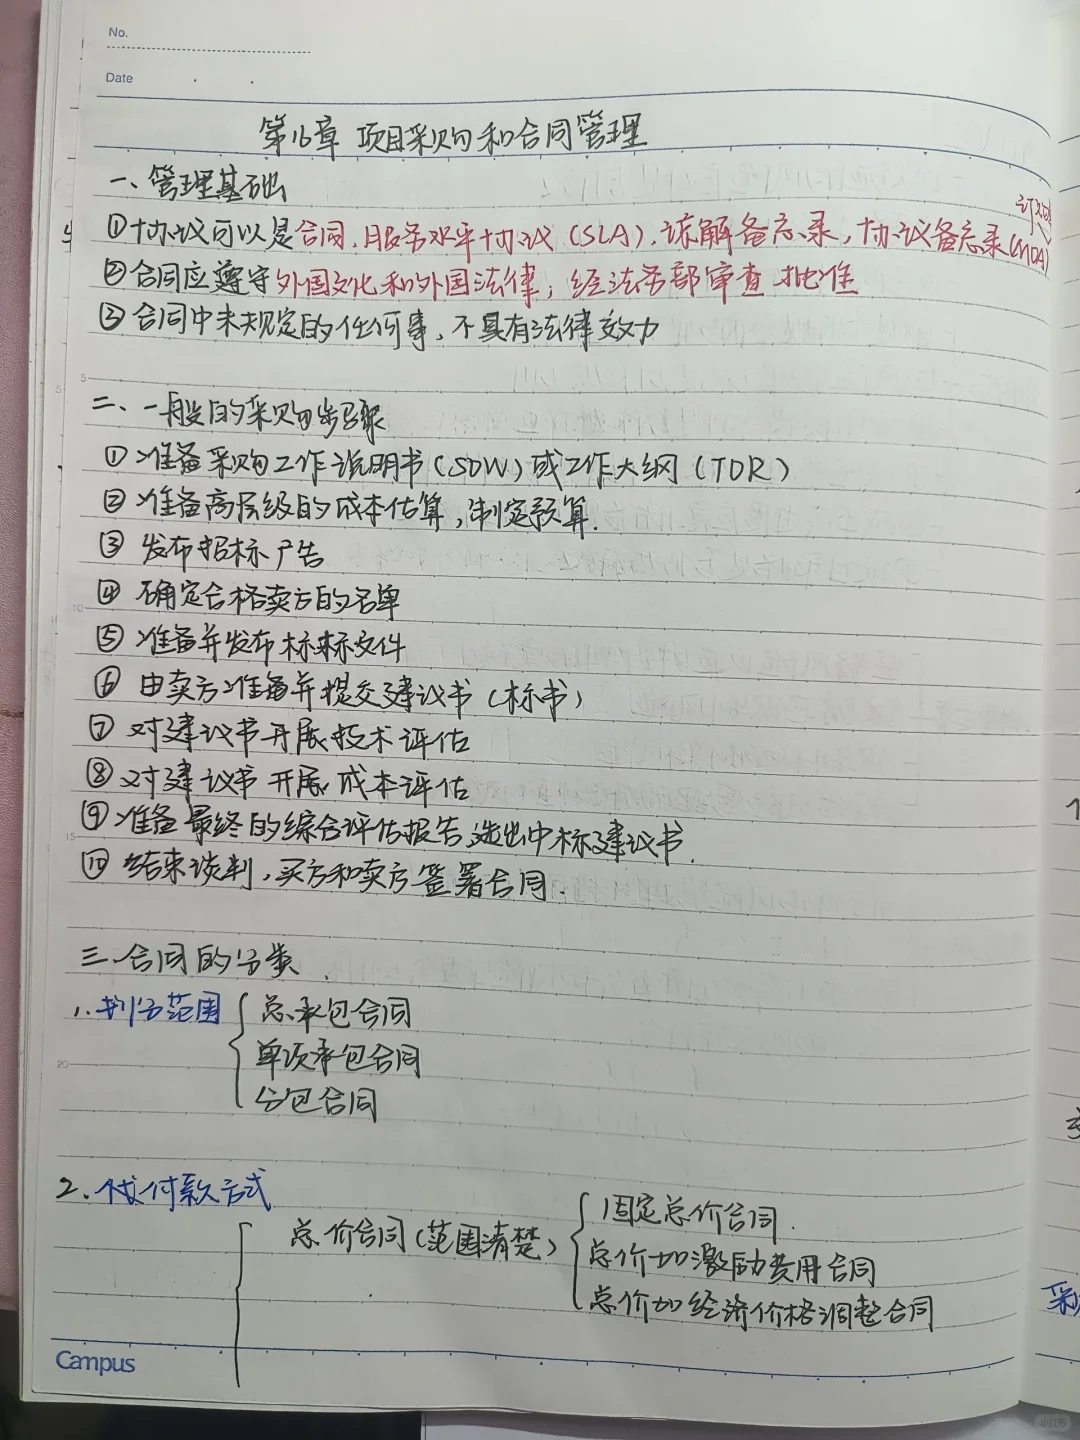 No.
Date
第16章 项目采购和合同管理
一、管理基础
①协议可以是合同、服务水平协议（SLA）、谅解备忘录，协议备忘录(MOA)
订购单
②合同应遵守外国文化和外国法律；经法务部审查批准
③合同中未规定的任何事，不具有法律效力
二、一般的采购步骤
①准备采购工作说明书（SOW）或工作大纲（TOR）
②准备高层级的成本估算，制定预算.
③ 发布招标广告
④ 确定合格卖方的名单
⑤准备并发布标文件
⑥ 由卖方准备并提交建议书（标书）
⑦ 对建议书开展技术评估
⑧对建议书开展成本评估
⑨准备最终的综合评估报告,选出中标建议书.
⑩ 结束谈判，买方和卖方签署合同.
三.合同的分类.
1.划分范围
总承包合同
单项承包合同
分包合同
2.付款方式
总价合同（范围清楚）
固定总价合同.
总价加激励费用合同
总价加经济价格调整合同
Campus
5
10
15
20
小红书